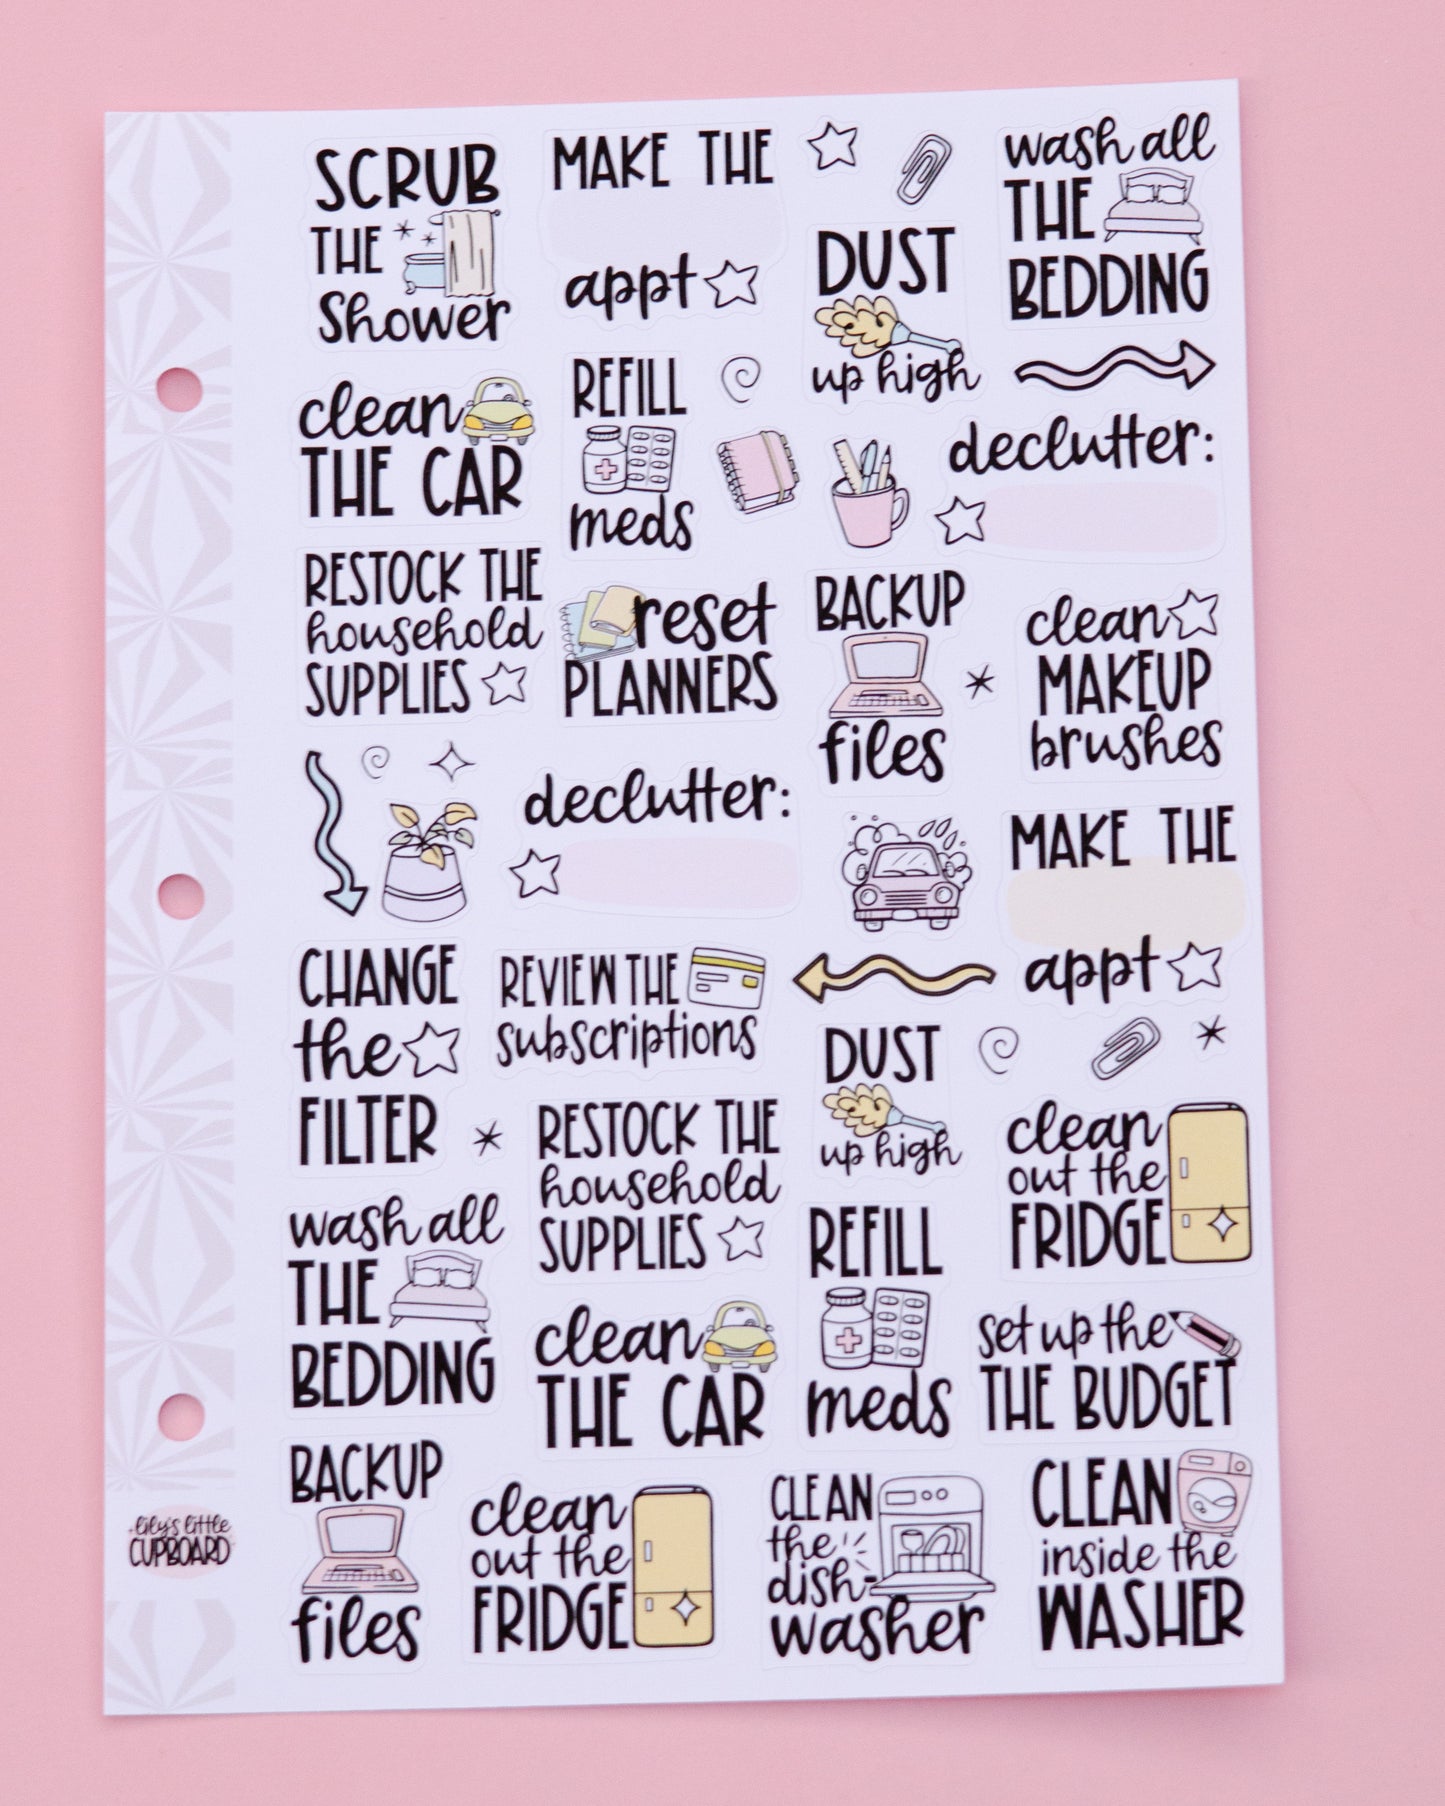 SCRUB
THE
Shower
MAKE THE
appt
DUST
up high
wash all
THE
BEDDING
clean
THE CAR
REFILL
meds
declutter:
RESTOCK THE
household
SUPPLIES
reset
PLANNERS
BACKUP
files
clean
MAKEUP
brushes
declutter:
MAKE THE
appt
CHANGE
the
FILTER
REVIEW THE
subscriptions
DUST
up high
clean
out the
FRIDGE
RESTOCK THE
household
SUPPLIES
wash all
THE
BEDDING
clean
THE CAR
REFILL
meds
set up the
THE BUDGET
BACKUP
files
clean
out the
FRIDGE
CLEAN
the
dish-
washer
CLEAN
inside the
WASHER
lily's little
CUPBOARD